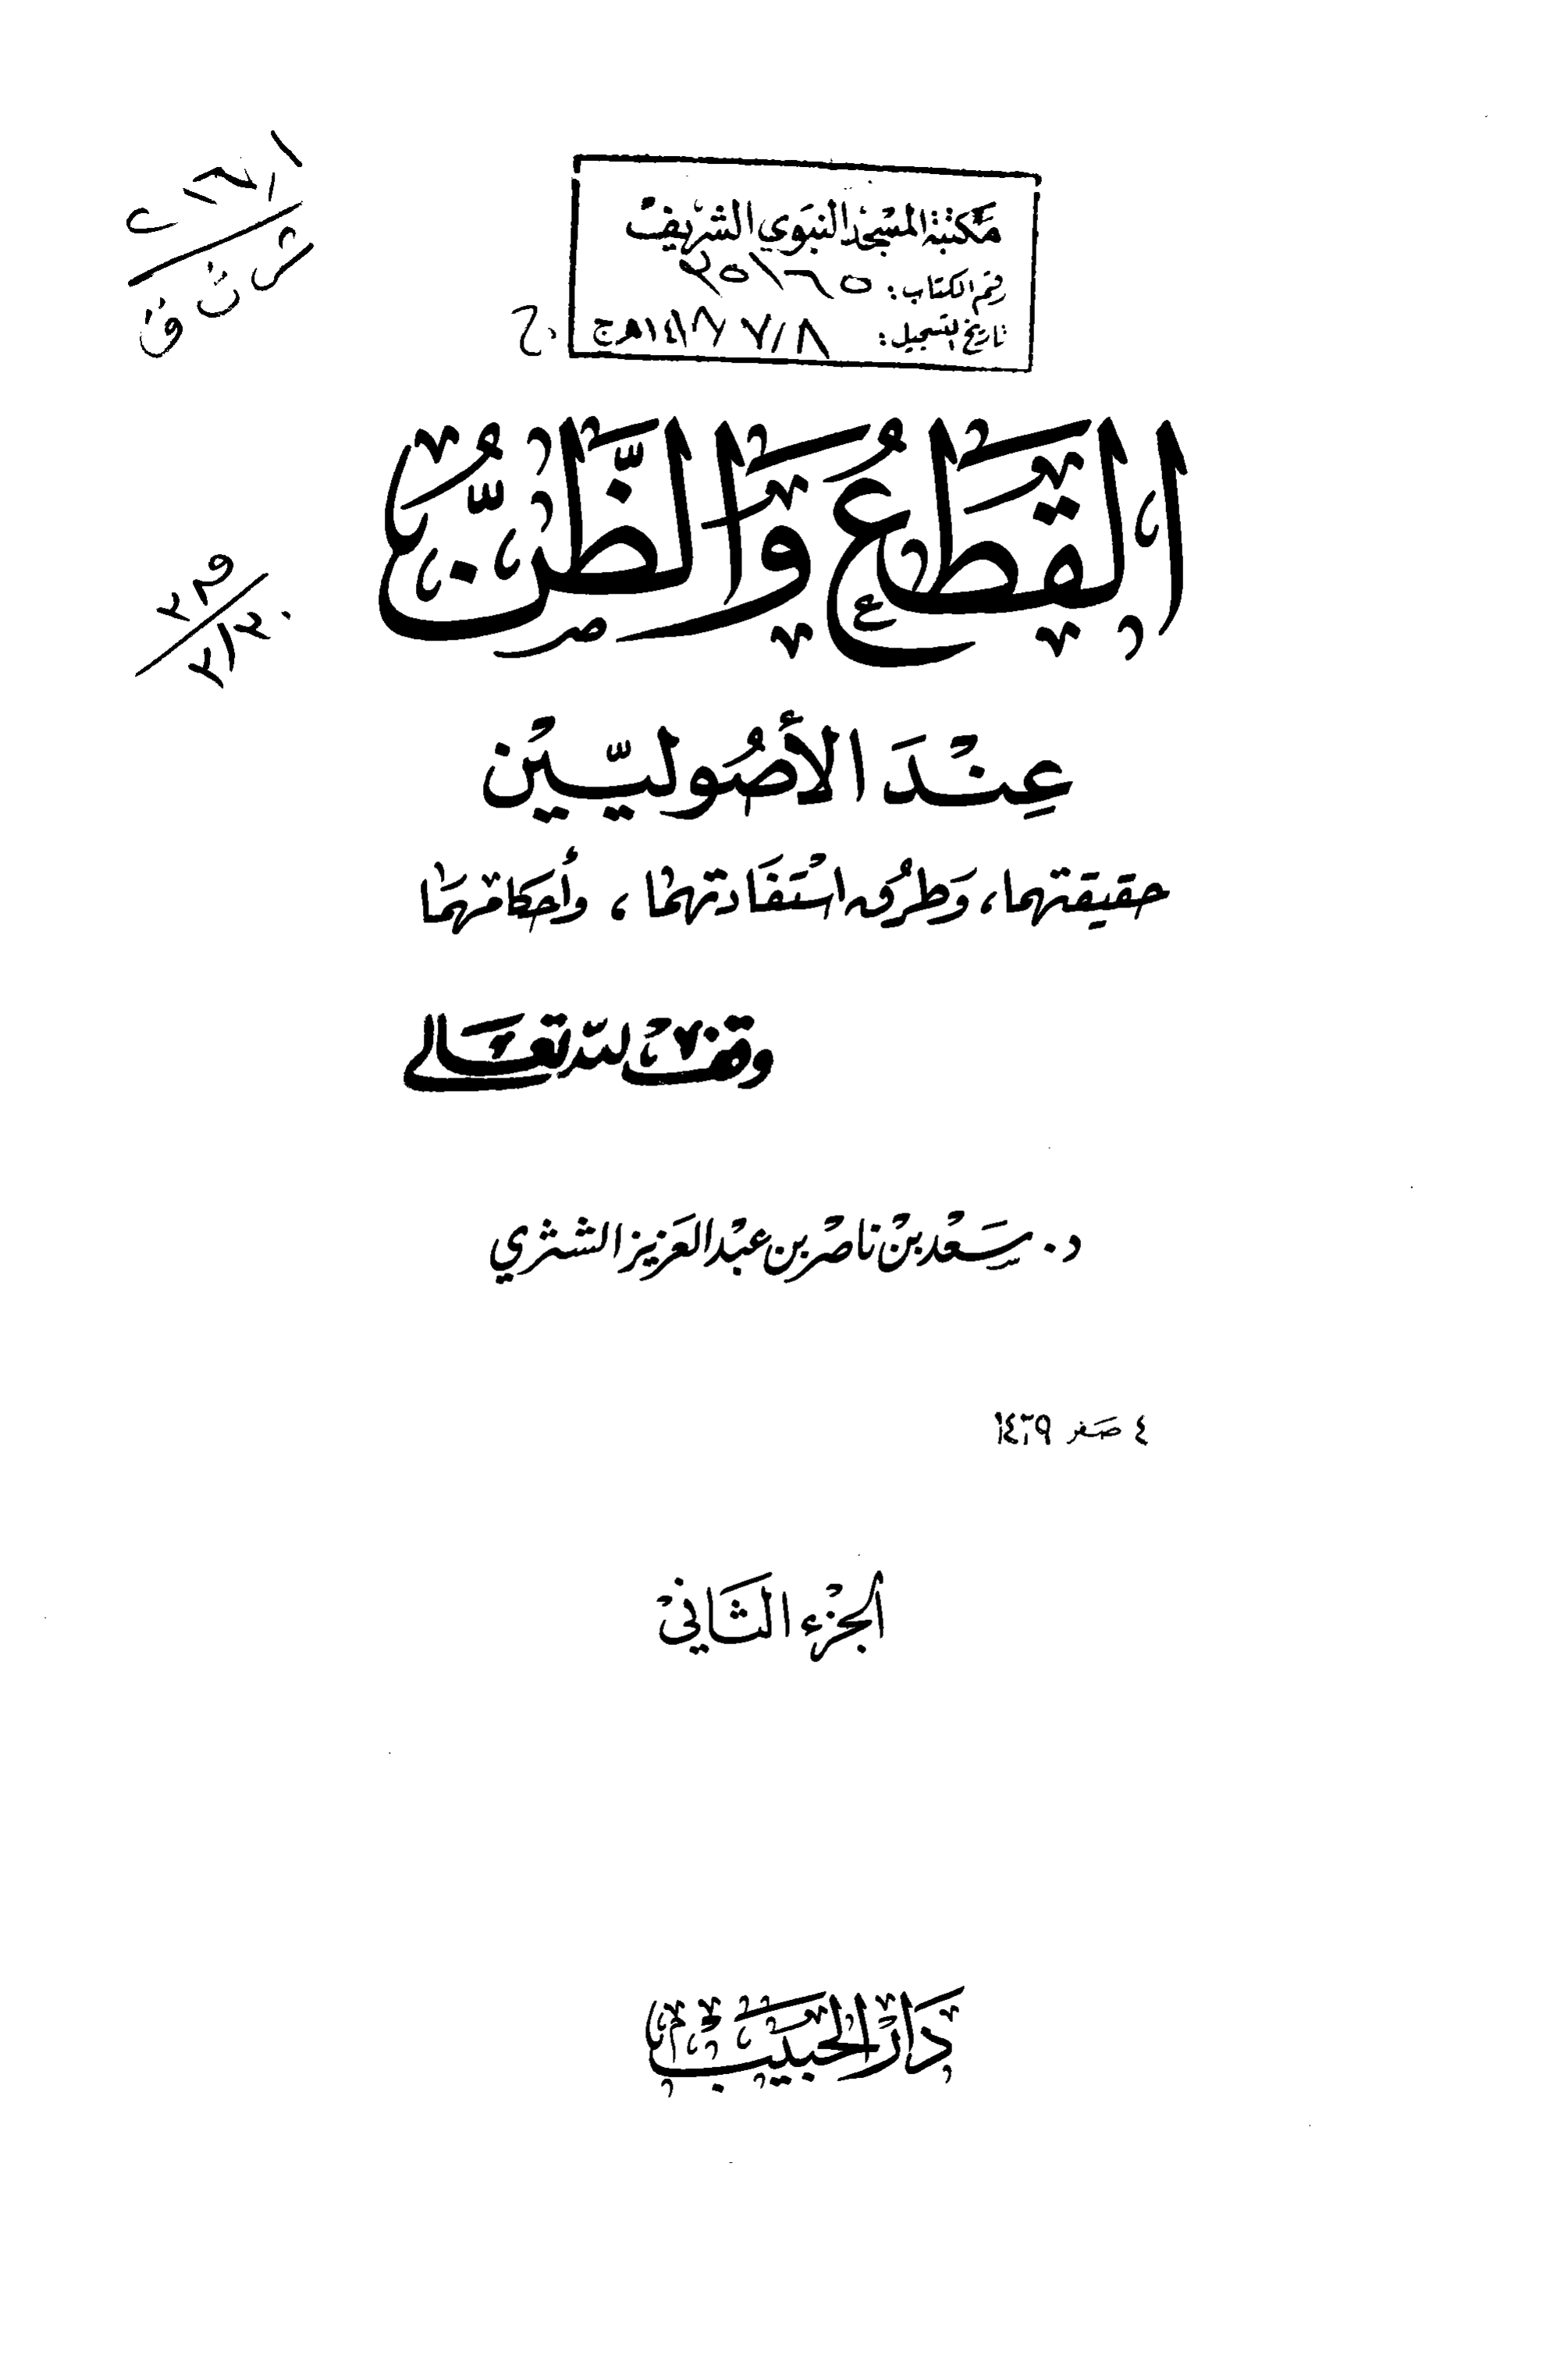 مكتبة المسجد النبوي الشريف
رقم الكتاب:
تاريخ التسجيل: ٧/٨
القَطعُ وَالظَّنُّ
عِنْدَ الأصُوليّيْن
حقيقتهما، وَطرُق اسْتفَادتهمَا، وأحكامهمَا
وقفْ لله تعَالى
د. سَعْد بنْ ناصْر بن عبْد العَزيز الشثري
٤ صَفر ١٤٢٩
الجزْء الثَاني
دَارُ الحَبيْب